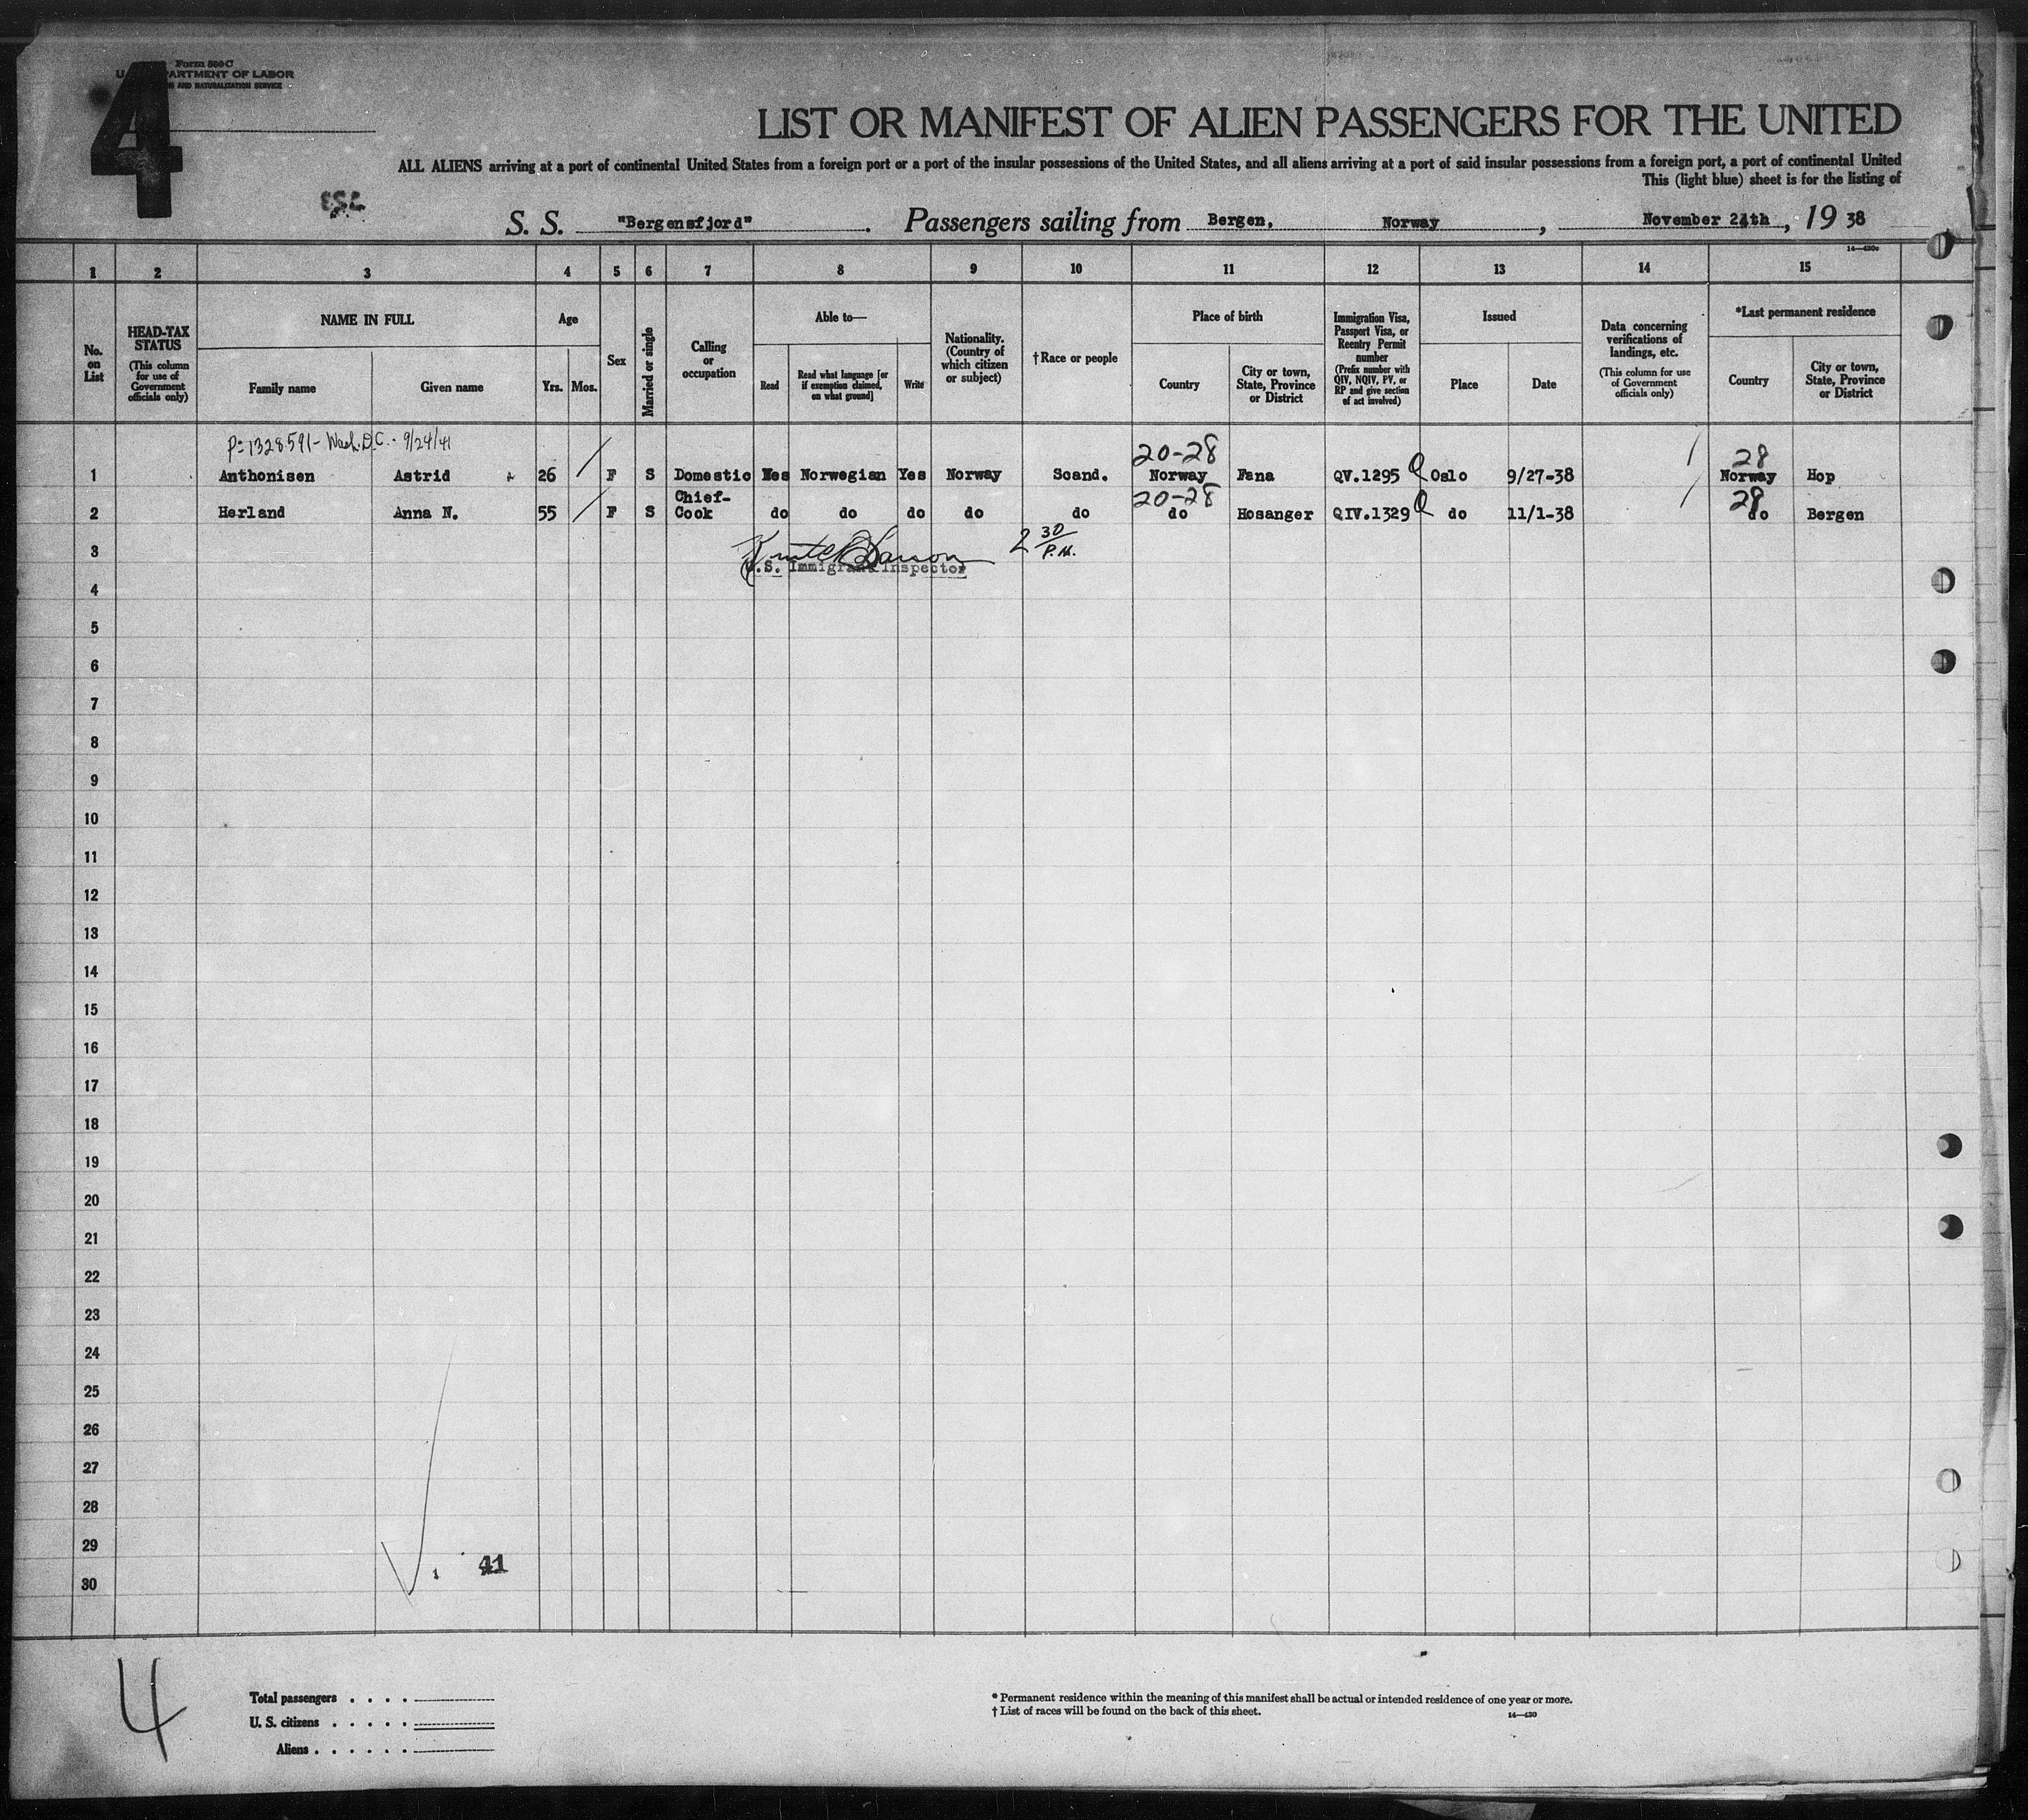 Form 500 C
U. S. DEPARTMENT OF LABOR
AND NATURALIZATION SERVICE
4
LIST OR MANIFEST OF ALIEN PASSENGERS FOR THE UNITED
ALL ALIENS arriving at a port of continental United States from a foreign port or a port of the insular possessions of the United States, and all aliens arriving at a port of said insular possessions from a foreign port, a port of continental United
This (light blue) sheet is for the listing of
S. S. "Bergensfjord". Passengers sailing from Bergen, Norway, November 24th, 19 38
1 2 3 4 5 6 7 8 9 10 11 12 13 14 15
No. on List
HEAD-TAX STATUS (This column for use of Government officials only)
NAME IN FULL
Family name
Given name
Age
Yrs.
Mos.
Sex
Married or single
Calling or occupation
Able to—
Read
Read what language [or if exemption claimed, on what ground]
Write
Nationality. (Country of which citizen or subject)
†Race or people
Place of birth
Country
City or town, State, Province or District
Immigration Visa, Passport Visa, or Reentry Permit number (Prefix number with QIV, NQIV, PV, or RP and give section of act involved)
Issued
Place
Date
Data concerning verifications of landings, etc. (This column for use of Government officials only)
*Last permanent residence
Country
City or town, State, Province or District
P-1328591- Wash. D.C. - 9/24/41
20-28 28
1 Anthonisen Astrid 26 F S Domestic Yes Norwegian Yes Norway Scand. Norway Fana QV.1295 Oslo 9/27-38 Norway Hop
20-28 28
2 Herland Anna N. 55 F S Chief-Cook do do do do do do Hosanger QIV.1329 do 11/1-38 do Bergen
3 2 30 P.M.
U.S. Immigrant Inspector
4
5
6
7
8
9
10
11
12
13
14
15
16
17
18
19
20
21
22
23
24
25
26
27
28
29
41
30
4
Total passengers . . . .
U. S. citizens . . . . .
Aliens . . . . . .
* Permanent residence within the meaning of this manifest shall be actual or intended residence of one year or more.
† List of races will be found on the back of this sheet.
14—430